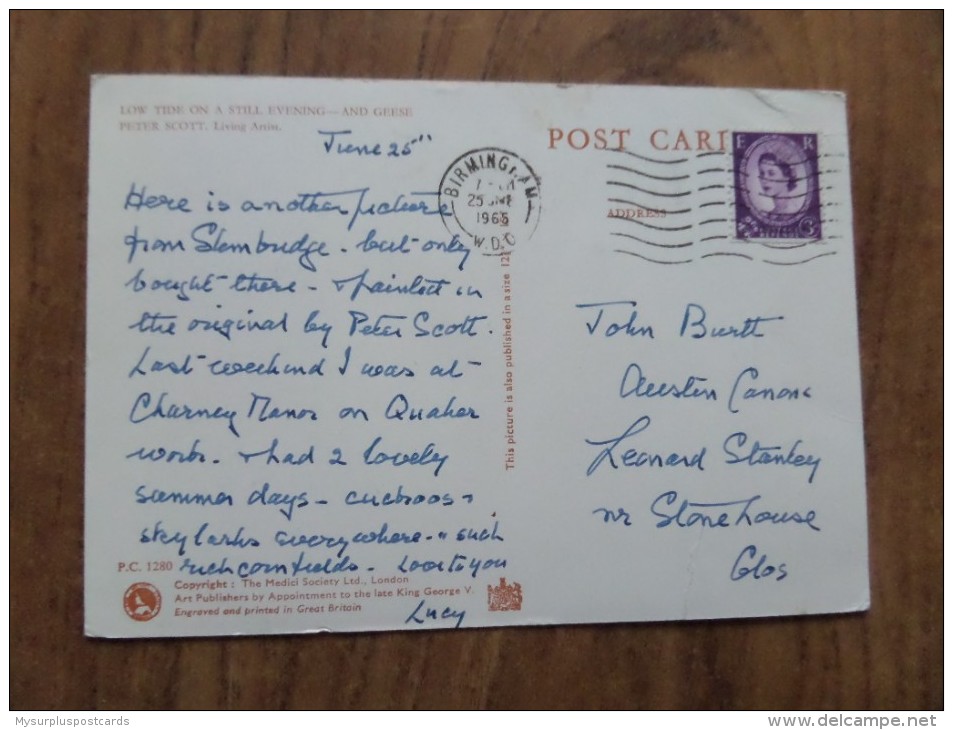 LOW TIDE ON A STILL EVENING—AND GEESE
PETER SCOTT. Living Artist.
June 25th
Here is another picture
from Slimbridge - but only
bought there - & painted in
the original by Peter Scott.
Last weekend I was at
Charney Manor on Quaker
work - & had 2 lovely
summer days - cuckoos &
skylarks everywhere - & such
rich cornfields - Love to you
Lucy
P.C. 1280
Copyright : The Medici Society Ltd., London
Art Publishers by Appointment to the late King George V.
Engraved and printed in Great Britain
This picture is also published in a size 12
POST CARD
BIRMINGHAM
25 JNE
1965
W.D.O
E R
3D
ADDRESS
John Burtt
Austin Canons
Leonard Stanley
nr Stonehouse
Glos
Mysurpluspostcards
www.delcampe.net